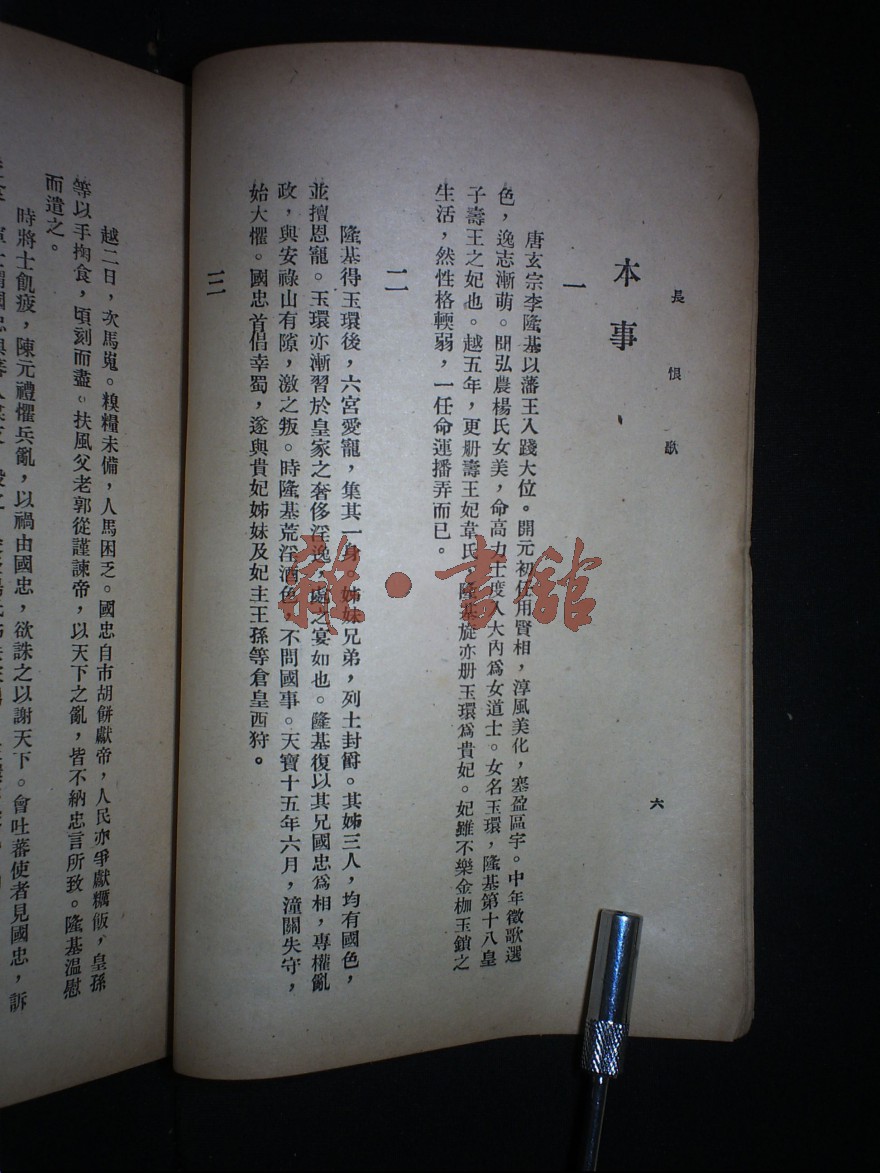 長恨歌
六
本事
一
唐玄宗李隆基以藩王入踐大位。開元初任用賢相，淳風美化，塞盈區宇。中年徵歌選
色，逸志漸萌。聞弘農楊氏女美，命高力士度入大內爲女道士。女名玉環，隆基第十八皇
子壽王之妃也。越五年，更册壽王妃韋氏，隆基旋亦册玉環爲貴妃。妃雖不樂金枷玉鎖之
生活，然性格輭弱，一任命運播弄而已。
二
隆基得玉環後，六宮愛寵，集其一身，姊妹兄弟，列土封爵。其姊三人，均有國色，
並擅恩寵。玉環亦漸習於皇家之奢侈淫逸，處之宴如也。隆基復以其兄國忠爲相，專權亂
政，與安祿山有隙，激之叛。時隆基荒淫酒色，不問國事。天寶十五年六月，潼關失守，
始大懼。國忠首倡幸蜀，遂與貴妃姊妹及妃主王孫等倉皇西狩。
三
越二日，次馬嵬。糗糧未備，人馬困乏。國忠自市胡餅獻帝，人民亦爭獻糲飯，皇孫
等以手掬食，頃刻而盡。扶風父老郭從謹諫帝，以天下之亂，皆不納忠言所致。隆基溫慰
而遣之。
時將士飢疲，陳元禮懼兵亂，以禍由國忠，欲誅之以謝天下。會吐蕃使者見國忠，訴
雜·書館